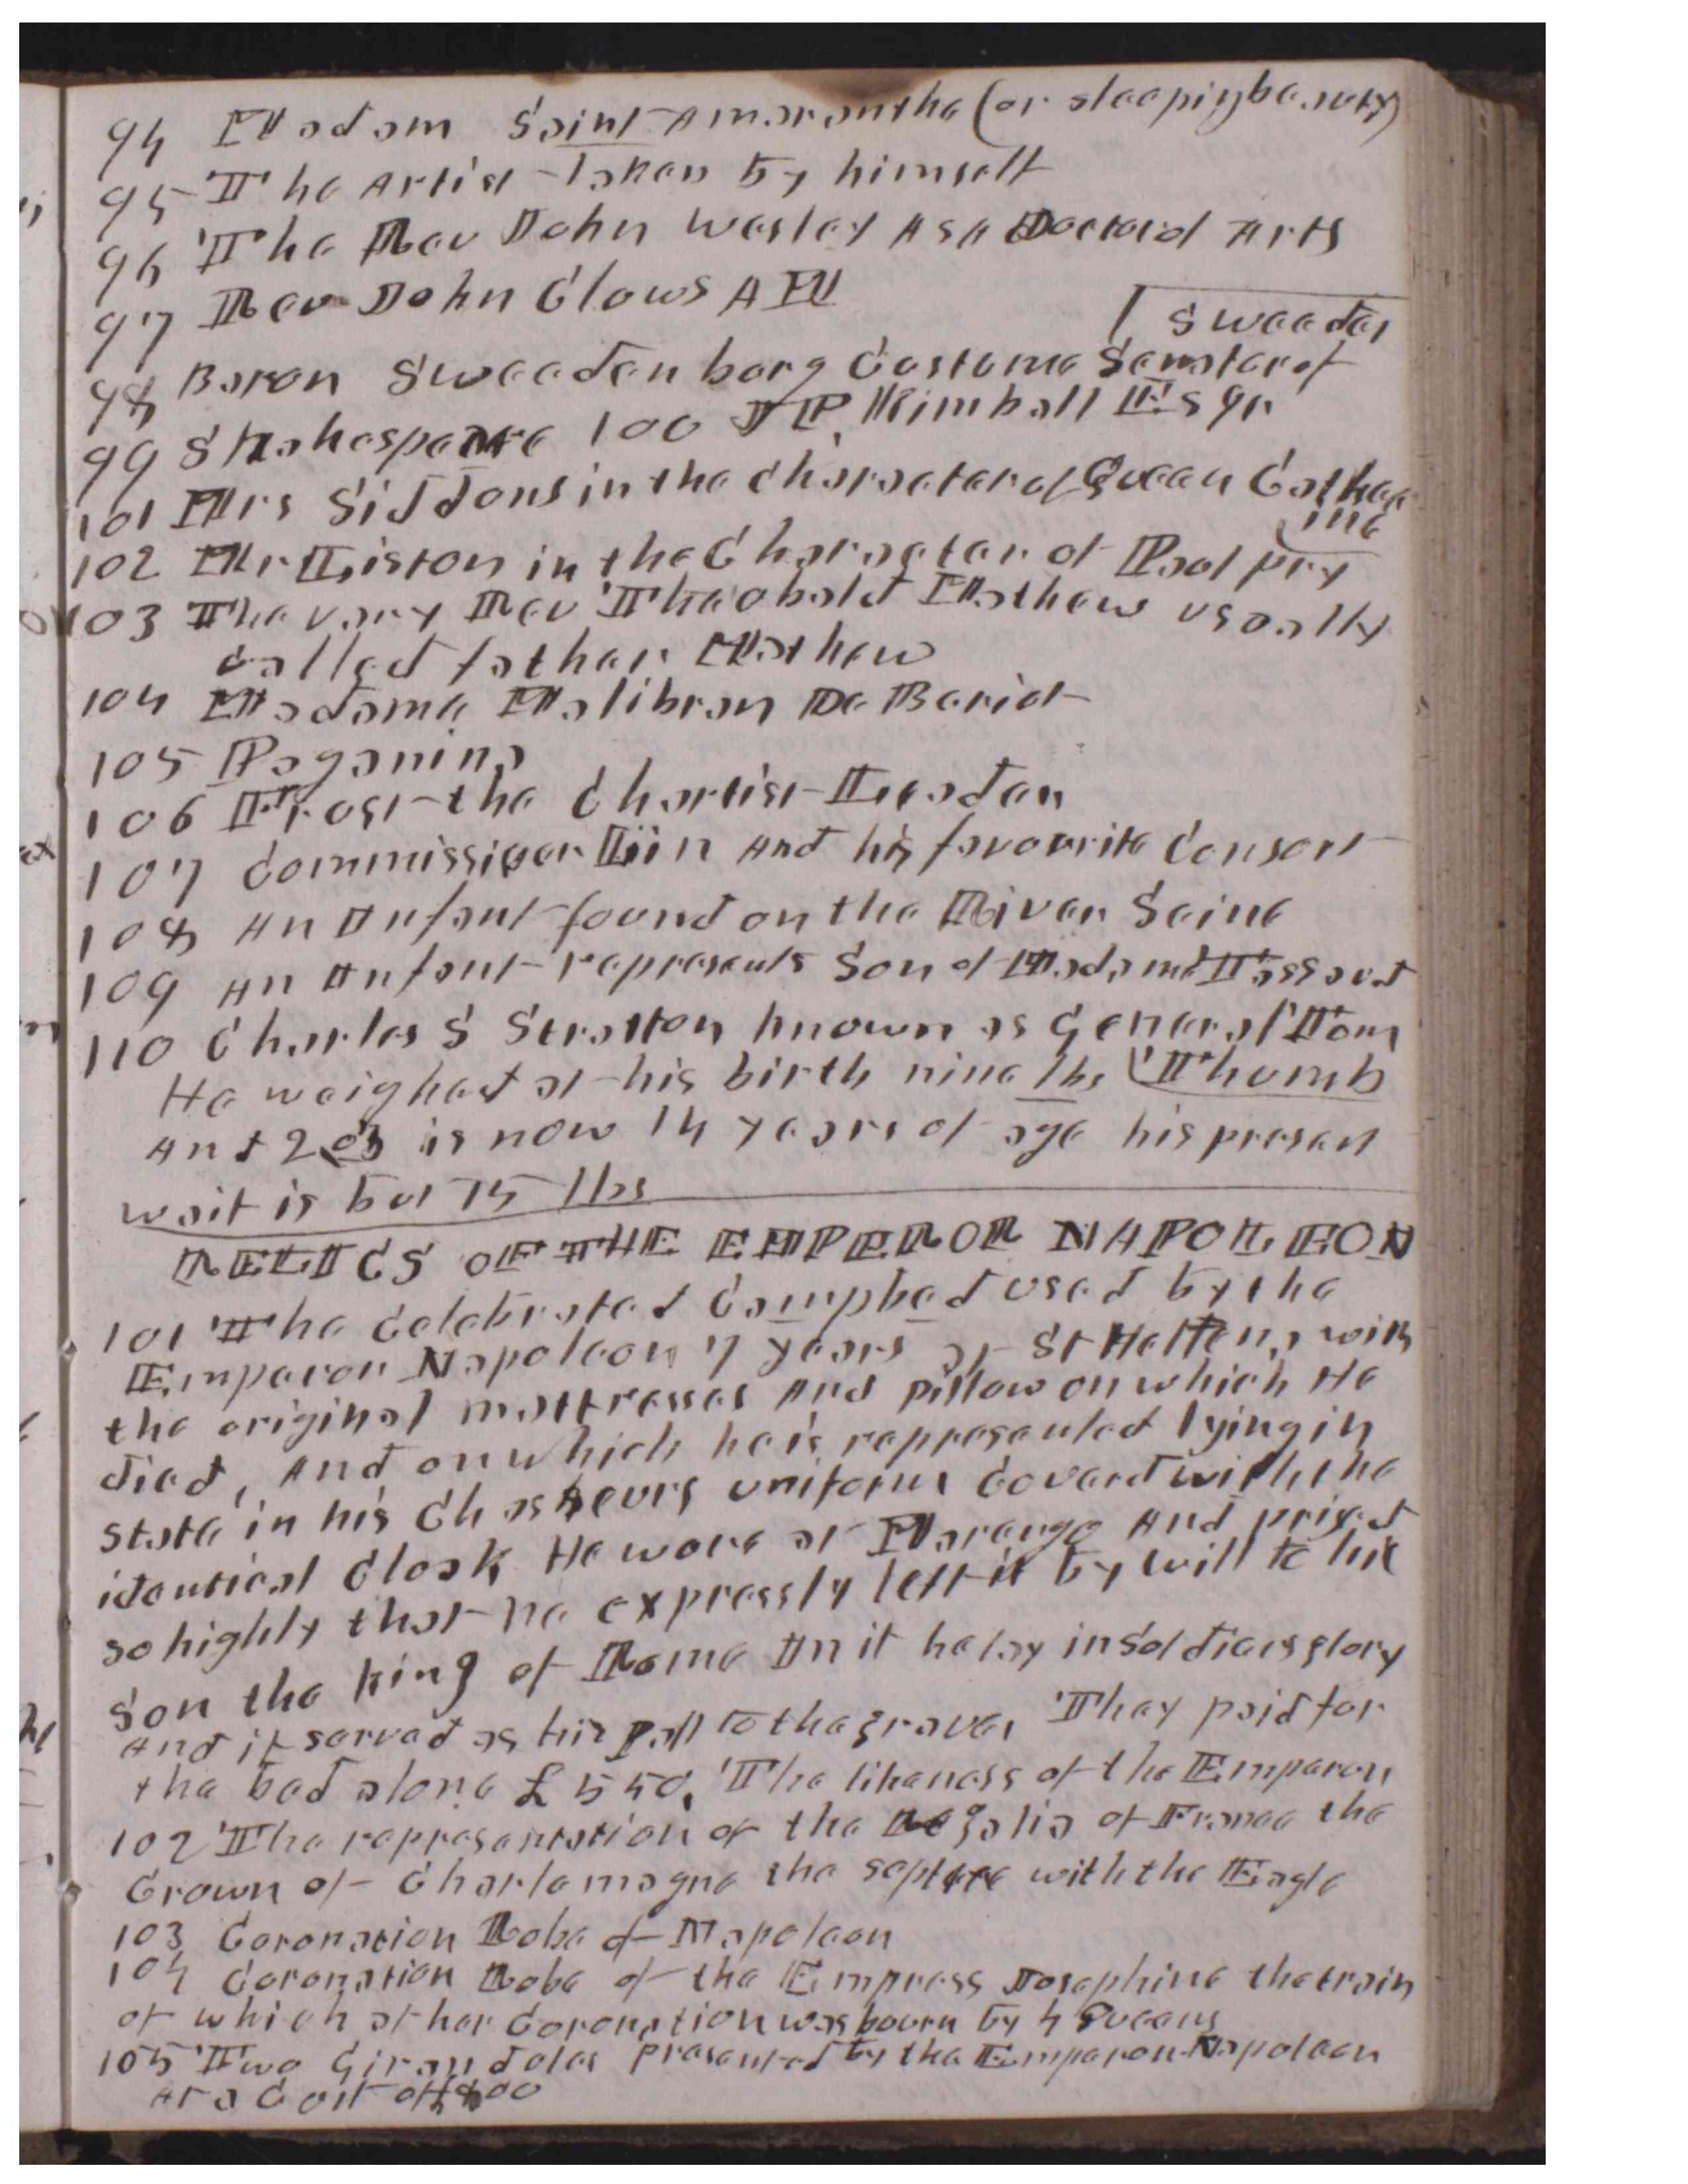 94 Madam Saint Amaranthe (or sleepingbeauty)
95 The Artist taken by himself
96 The Rev John Wesley As A Doctor of Arts
97 Rev John Clows AM
Sweeden
98 Baron Sweedenborg Costume Senator of
99 Shakespeare 100 J P. Kimball Esqr
101 Mrs Siddons in the character of Queen Cathee
ine
102 Mr Liston in the Character of Paul pry
103 The very Rev Theobald Mathew usually
called father Mathew
104 Madama Malibran De Beriot
105 Paganina
106 Frost the Chartist Leader
107 Commissioner Liin And his favourite Consort
108 An Infant found on the River Seine
109 An Infant represents Son of Madame Tassaud
110 Charles S Stratton known as General Tom
He weighed at his birth nine lbs Thumb
And 2 oz is now 14 years of age his present
wait is but 15 lbs
RELICS OF THE EMPEROR NAPOLEON
101 The Celebrated Campbed used by the
Emperor Napoleon 7 years at St Hellena with
the original mattresses And pillow on which He
died, And on which he is represented lying in
state in his Chasseurs uniform Coverd with the
identical Cloak He wore at Marengo And prised
so highly that he expressly left it by will to his
Son the king of Rome In it he lay in Soldiers glory
And it served as his Pall to the grave, They paid for
the bed alone £ 550, The likeness of the Emperor
102 The representation of the Regalia of France the
Crown of Charlemagne the septere with the Eagle
103 Coronation Robe of Napoleon
104 Coronation Robe of the Empress Josephine the train
of which at her Coronation was bourn by 4 Queens
105 Two Girandoles presented by the Emperor Napoleon
At a Cost of £800